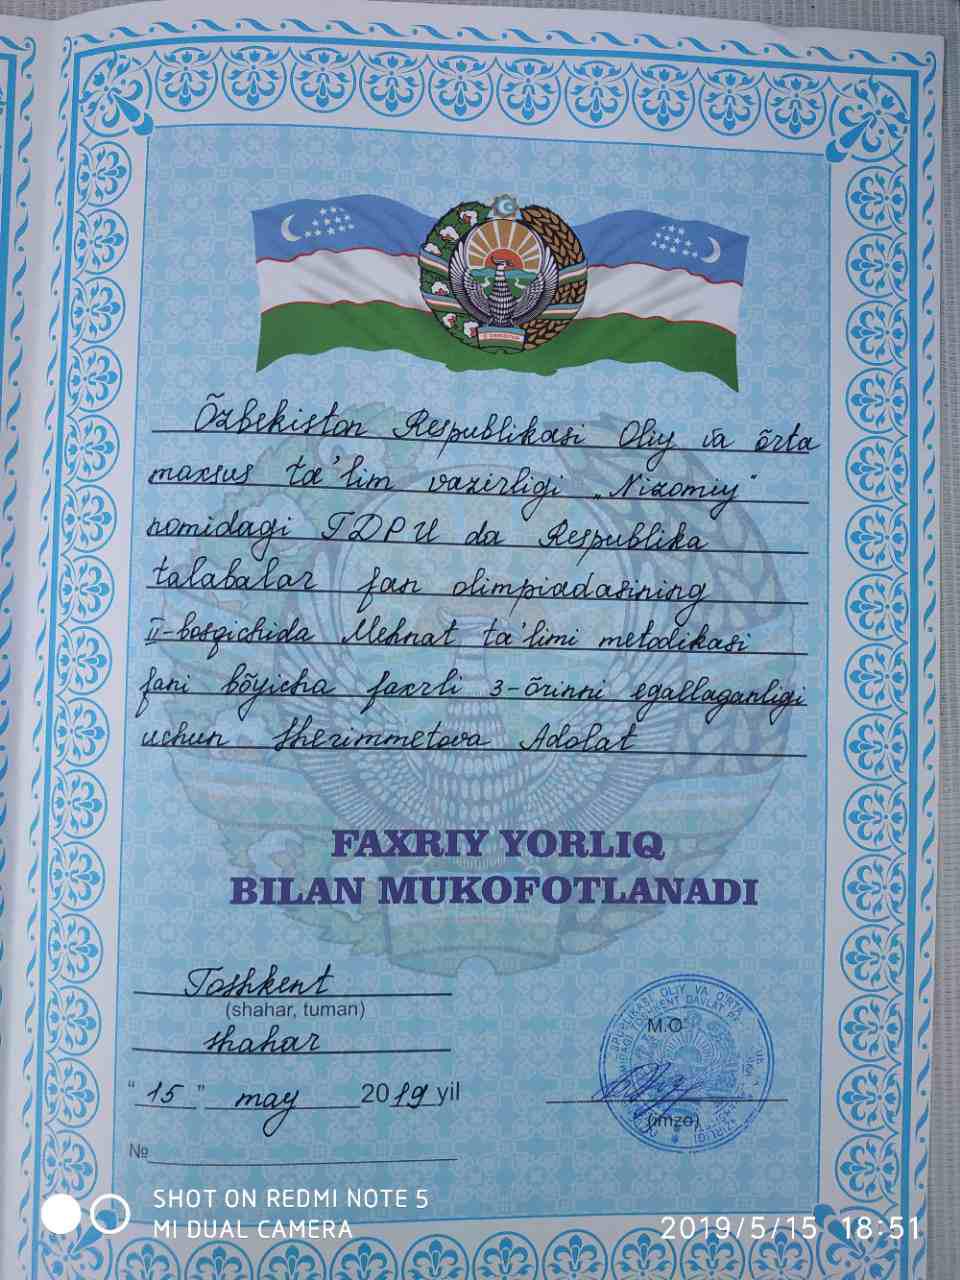 Õzbekiston Respublikasi Oliy va õrta
maxsus ta'lim vazirligi „Nizomiy"
nomidagi TDPU da Respublika
talabalar fan olimpiadasining
II-bosqichida Mehnat ta'limi metodikasi
fani bõyicha faxrli 3-õrinni egallaganligi
uchun Sherimmetova Adolat
FAXRIY YORLIQ
BILAN MUKOFOTLANADI
Toshkent
(shahar, tuman)
shahar
"15" may 2019 yil
M.O'
(imzo)
№
SHOT ON REDMI NOTE 5
MI DUAL CAMERA
2019/5/15 18:51